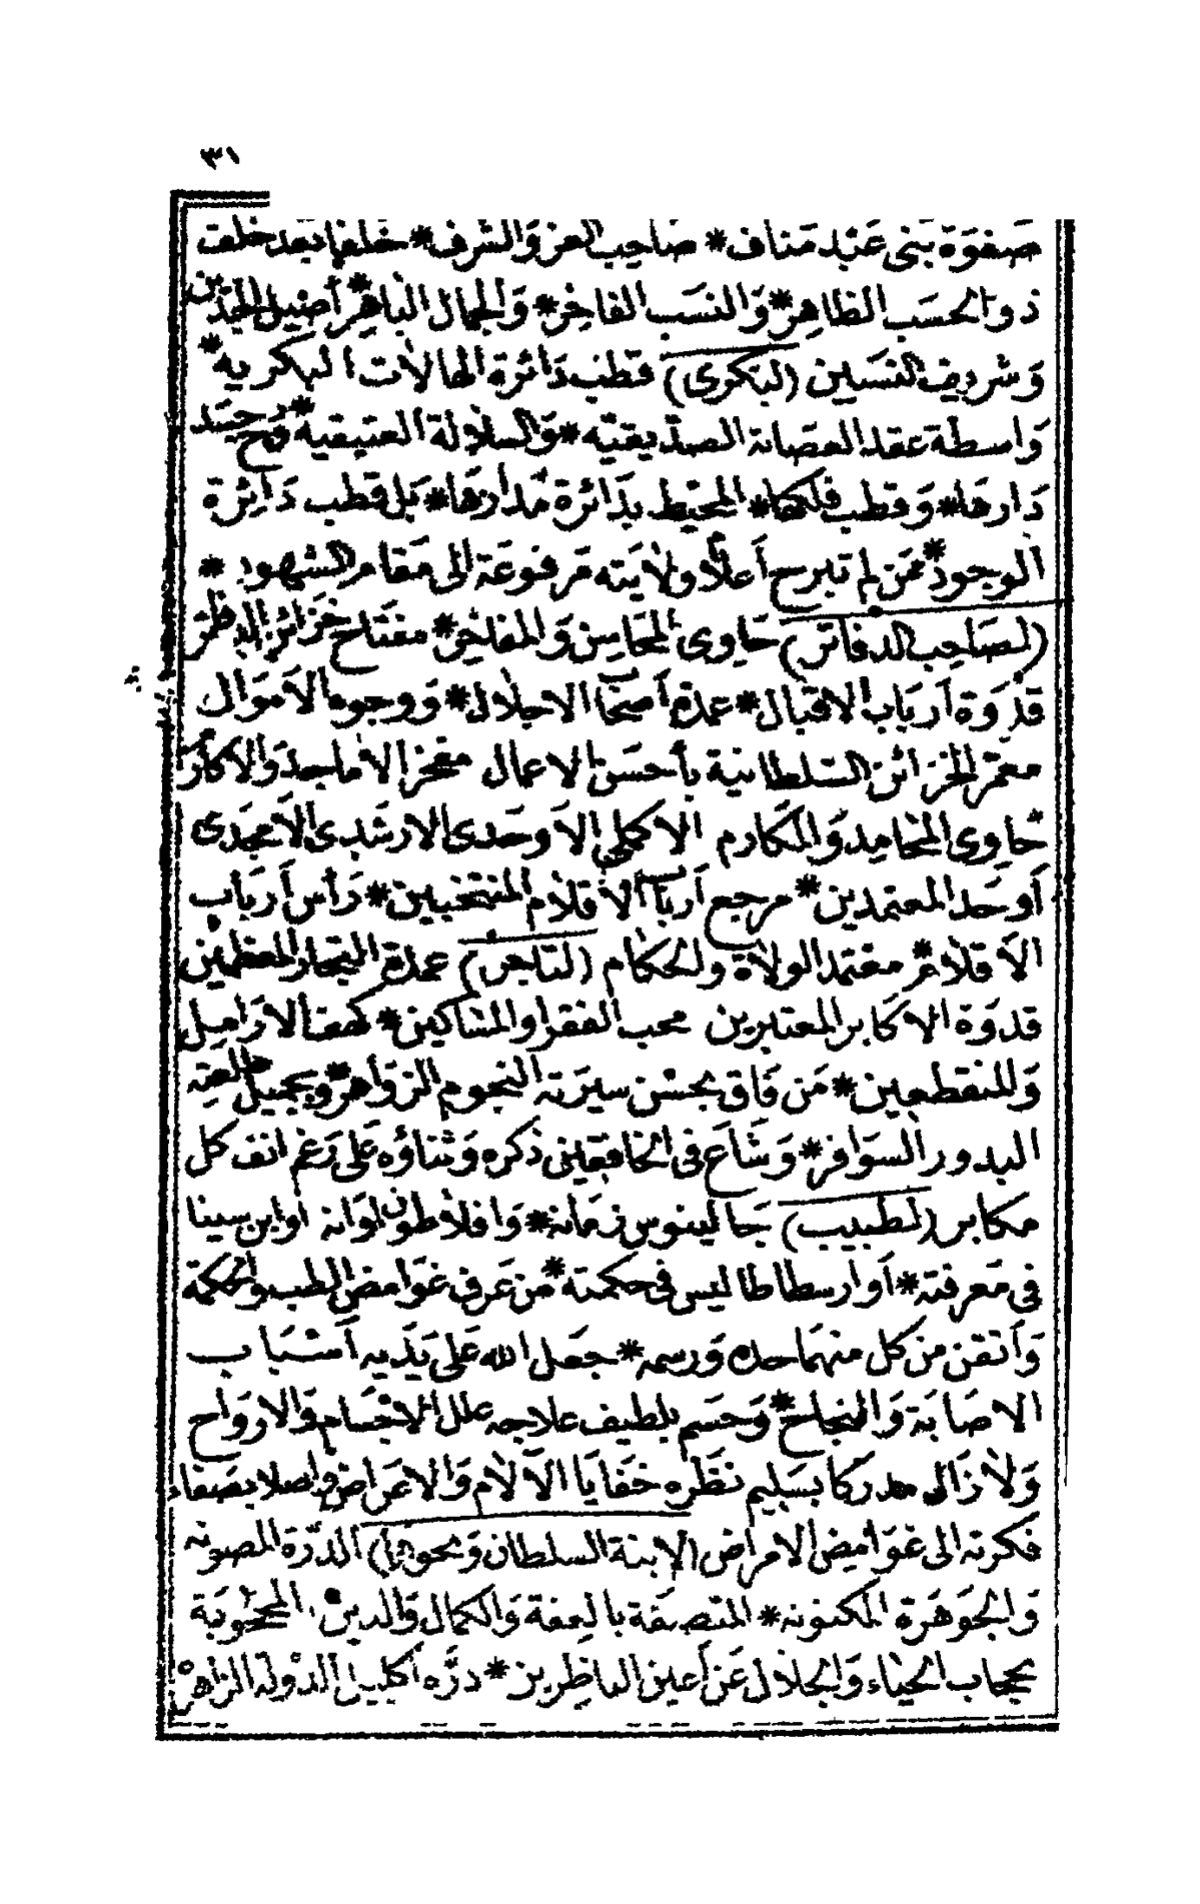 ٣١
صَفوَة بَنى عَبْد مَناف * صَاحِب العز وَالشرف * خلفا بعد خلف
ذو الحسَب الظاهِر * وَالنسَب الفاخِر * وَالجمال الباهِر * أصيل الجدين
وَشريف النسَبين (لبَكرى) قطب دَائرة الهالات البكريه *
وَاسطة عقد العصَابة الصدّيقيّه * وَالسلالة العتيقيه *
دَارهَا * وَقطب فلكها * المحيْط بدَائرة مدارهَا * بَل قطب دَائِرة
الوجود * مَن لم تبرح أعلام ولايَته مَرفوعَة الى مَقام الشهود *
(لصَاحِب الدفاتر) حَاوى المحَاسِن وَالمفاخِر * مفتَاح خزَائن
قدْوَة أربَاب الاقبال * عمدة أصحَاب الاجلال * وَوجوه الأموَال
معَمّر الخزائن السّلطانية بأحسَن الاعمال مفخر الأماجد وَالاكابر
حَاوى المحَامِد وَالمكَارم الاكملى الأوحَدى الارشَدى الأمجَدى
أوحَد المعتمدين * مرجع أربَاب الأقلام المنتخبين * رَأس أربَاب
الأقلام * معتمد الولاة والحكام (لتاجر) عمدة التجار المعظمين
قدوَة الاكابر المعتبرين محب الفقرا والمسَاكين * كهف الأرَامِل
وَالمنقطعين * مَن فَاق بحسْن سيرَته النجوم الزوَاهر * وبجميل
البدور السوَافر * وَشَاعَ فى الخافقين ذكره وَثناؤه عَلى رَغم انف كل
مكابر (لطبيب) جَالينوس زمَانه * وَافلاطون اوانه أوابن سينا
فى مَعرفته * أوارسطاطاليس فى حكمته * مَن عَرف غوَامض الطب والحكمة
وَأتقن من كل منهمَا حده وَرسمه * جعَل الله عَلى يَدَيه أسْبَاب
الاصَابَة وَالنجاح * وَحسَم بلطيف علاجه علل الاجْسَام وَالارواح
وَلازَال مدركا بسَليم نظَره خفَايا الآلام وَالاعرَاض واصلا بصَفاء
فكرته الى غوَامض الامراض (لابنة السلطان وَنحوها) الدّرة المصونه
وَالجوهَرة المكنونه * المتصفة بالعفة وَالكمال وَالدين المحجوبَة
بحجاب الحيَاء وَالجلال عَن أعين الناظِرين * درّه أكليل الدولة الزاهرة